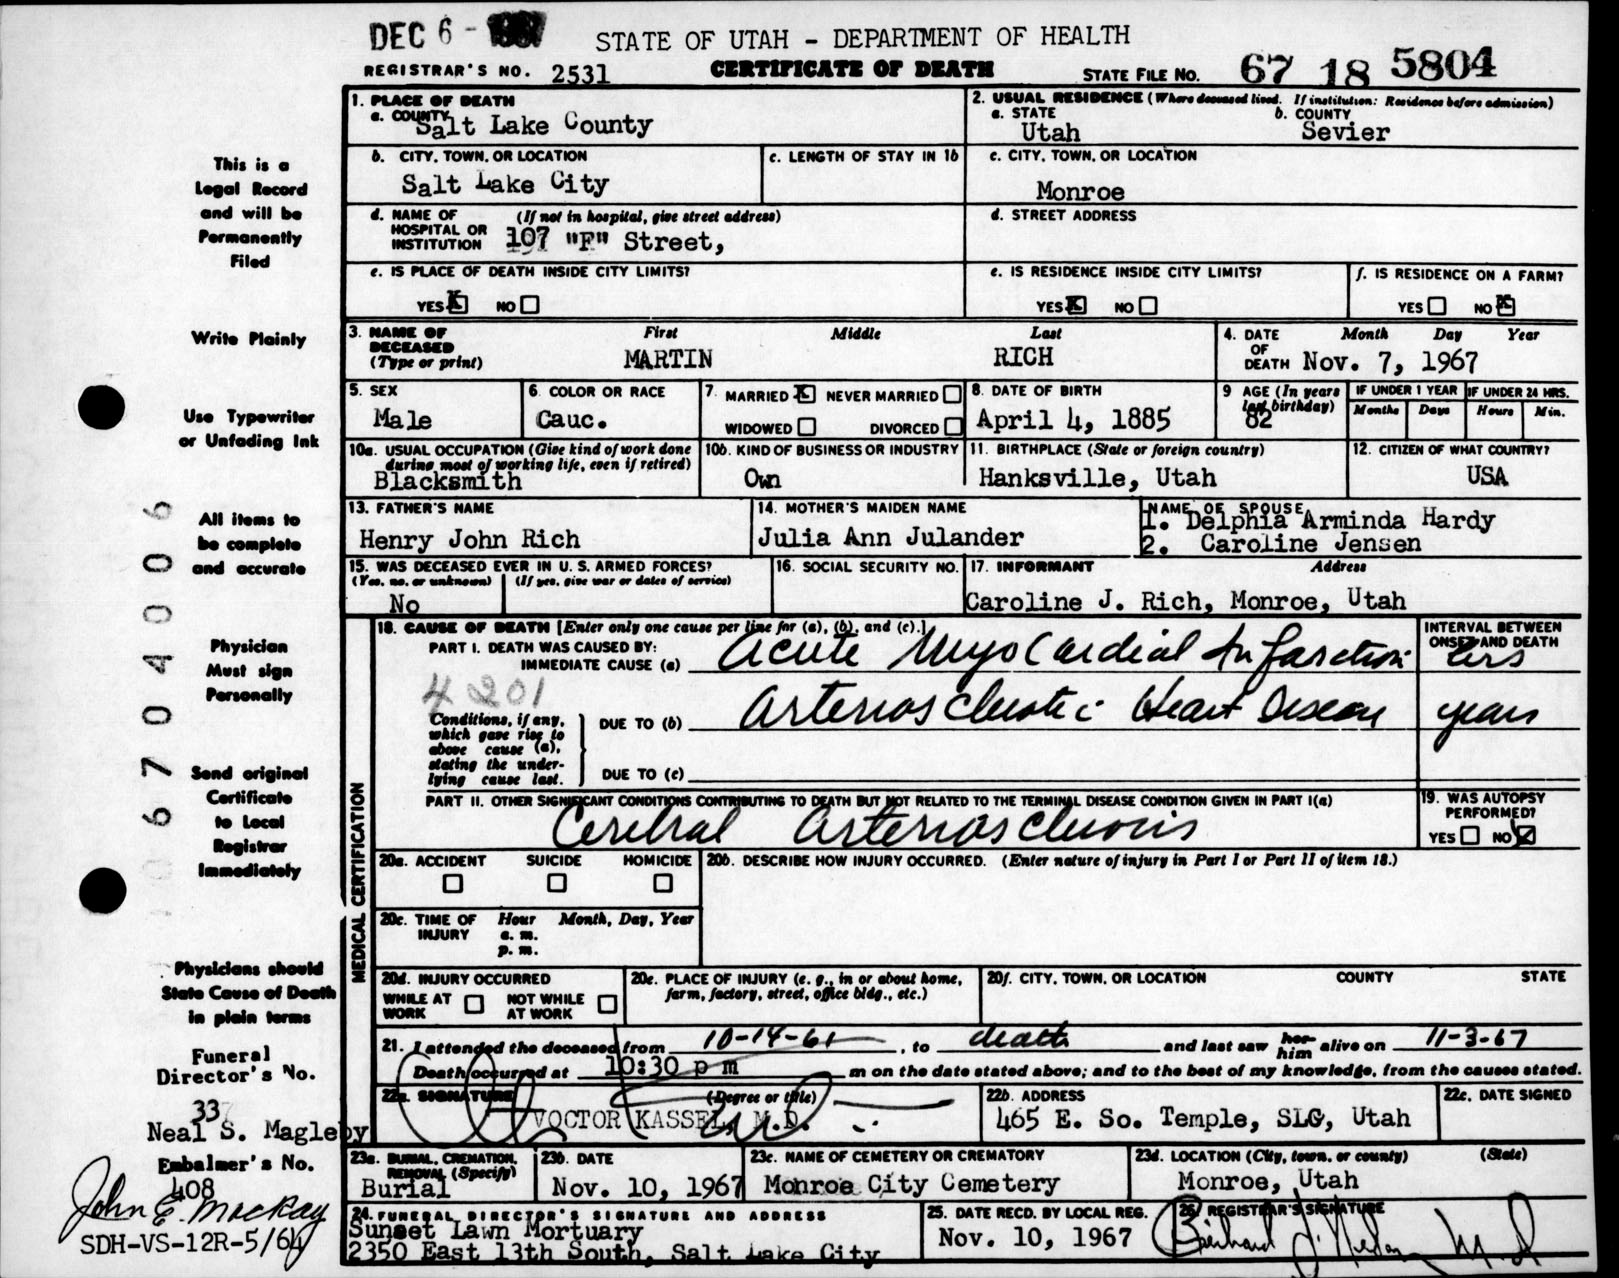 DEC 6 -
STATE OF UTAH - DEPARTMENT OF HEALTH
REGISTRAR'S NO. 2531
CERTIFICATE OF DEATH
STATE FILE NO. 67 18 5804
1. PLACE OF DEATH
a. COUNTY
Salt Lake County
2. USUAL RESIDENCE (Where deceased lived. If institution: Residence before admission)
a. STATE
b. COUNTY
Utah
Sevier
b. CITY, TOWN, OR LOCATION
c. LENGTH OF STAY IN 1b
Salt Lake City
c. CITY, TOWN, OR LOCATION
Monroe
d. NAME OF HOSPITAL OR INSTITUTION
(If not in hospital, give street address)
107 "F" Street,
d. STREET ADDRESS
e. IS PLACE OF DEATH INSIDE CITY LIMITS?
YES X NO
e. IS RESIDENCE INSIDE CITY LIMITS?
YES X NO
f. IS RESIDENCE ON A FARM?
YES NO X
3. NAME OF DECEASED
(Type or print)
First
Middle
Last
MARTIN
RICH
4. DATE OF DEATH
Month Day Year
Nov. 7, 1967
5. SEX
Male
6. COLOR OR RACE
Cauc.
7. MARRIED X NEVER MARRIED
WIDOWED DIVORCED
8. DATE OF BIRTH
April 4, 1885
9 AGE (In years last birthday)
82
IF UNDER 1 YEAR
Months Days
IF UNDER 24 HRS.
Hours Min.
10a. USUAL OCCUPATION (Give kind of work done
during most of working life, even if retired)
Blacksmith
10b. KIND OF BUSINESS OR INDUSTRY
Own
11. BIRTHPLACE (State or foreign country)
Hanksville, Utah
12. CITIZEN OF WHAT COUNTRY?
USA
13. FATHER'S NAME
Henry John Rich
14. MOTHER'S MAIDEN NAME
Julia Ann Julander
NAME OF SPOUSE
1. Delphia Arminda Hardy
2. Caroline Jensen
15. WAS DECEASED EVER IN U. S. ARMED FORCES?
(Yes, no, or unknown) (If yes, give war or dates of service)
No
16. SOCIAL SECURITY NO.
17. INFORMANT
Address
Caroline J. Rich, Monroe, Utah
MEDICAL CERTIFICATION
18. CAUSE OF DEATH [Enter only one cause per line for (a), (b), and (c).]
INTERVAL BETWEEN ONSET AND DEATH
PART I. DEATH WAS CAUSED BY:
IMMEDIATE CAUSE (a) Acute Myocardial Infarction
hrs
4201
Conditions, if any,
which gave rise to
above cause (a),
stating the under-
lying cause last.
DUE TO (b) Arteriosclerotic Heart Disease
years
DUE TO (c)
PART II. OTHER SIGNIFICANT CONDITIONS CONTRIBUTING TO DEATH BUT NOT RELATED TO THE TERMINAL DISEASE CONDITION GIVEN IN PART I(a)
Cerebral Arteriosclerosis
19. WAS AUTOPSY PERFORMED?
YES NO
20a. ACCIDENT SUICIDE HOMICIDE
20b. DESCRIBE HOW INJURY OCCURRED. (Enter nature of injury in Part I or Part II of item 18.)
20c. TIME OF INJURY
Hour Month, Day, Year
a. m.
p. m.
20d. INJURY OCCURRED
WHILE AT WORK
NOT WHILE AT WORK
20e. PLACE OF INJURY (e. g., in or about home,
farm, factory, street, office bldg., etc.)
20f. CITY, TOWN, OR LOCATION COUNTY STATE
21. I attended the deceased from 10-14-61, to death and last saw her him alive on 11-3-67
Death occurred at 10:30 p m m on the date stated above; and to the best of my knowledge, from the causes stated.
22a. SIGNATURE (Degree or title)
VOCTOR KASSEL, M.D.
22b. ADDRESS
465 E. So. Temple, SLC, Utah
22c. DATE SIGNED
23a. BURIAL, CREMATION, REMOVAL (Specify)
Burial
23b. DATE
Nov. 10, 1967
23c. NAME OF CEMETERY OR CREMATORY
Monroe City Cemetery
23d. LOCATION (City, town, or county) (State)
Monroe, Utah
24. FUNERAL DIRECTOR'S SIGNATURE AND ADDRESS
Sunset Lawn Mortuary
2350 East 13th South, Salt Lake City
25. DATE RECD. BY LOCAL REG.
Nov. 10, 1967
26. REGISTRAR'S SIGNATURE
This is a
Legal Record
and will be
Permanently
Filed
Write Plainly
Use Typewriter
or Unfading Ink
All items to
be complete
and accurate
Physician
Must sign
Personally
Send original
Certificate
to Local
Registrar
Immediately
Physicians should
State Cause of Death
in plain terms
Funeral
Director's No.
33
Neal S. Magleby
Embalmer's No.
408
John E. Mackay
SDH-VS-12R-5/64
06704006